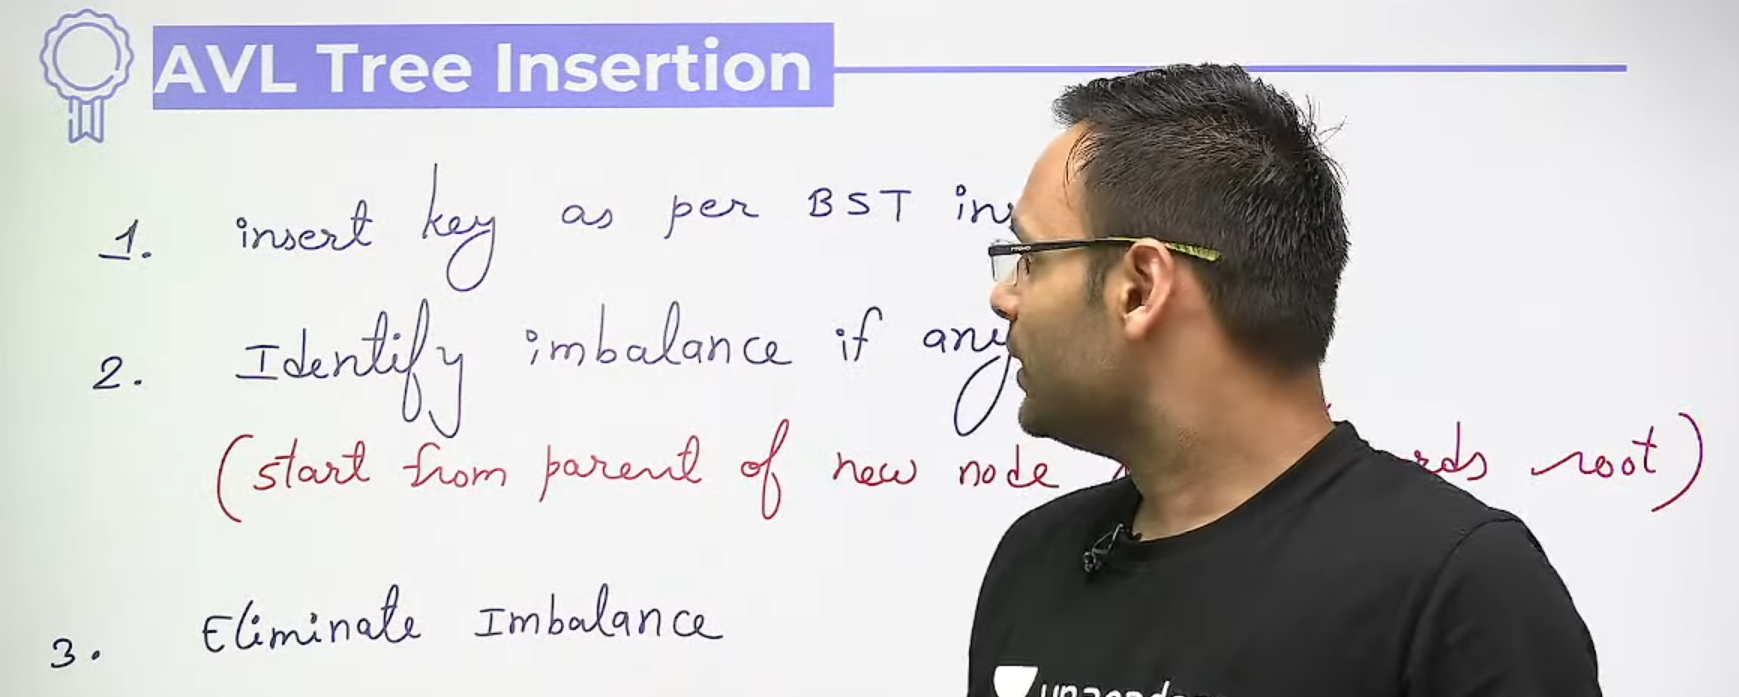 AVL Tree Insertion
1. insert key as per BST
2. Identify imbalance if any
(start from parent of new node root)
3. Eliminate Imbalance